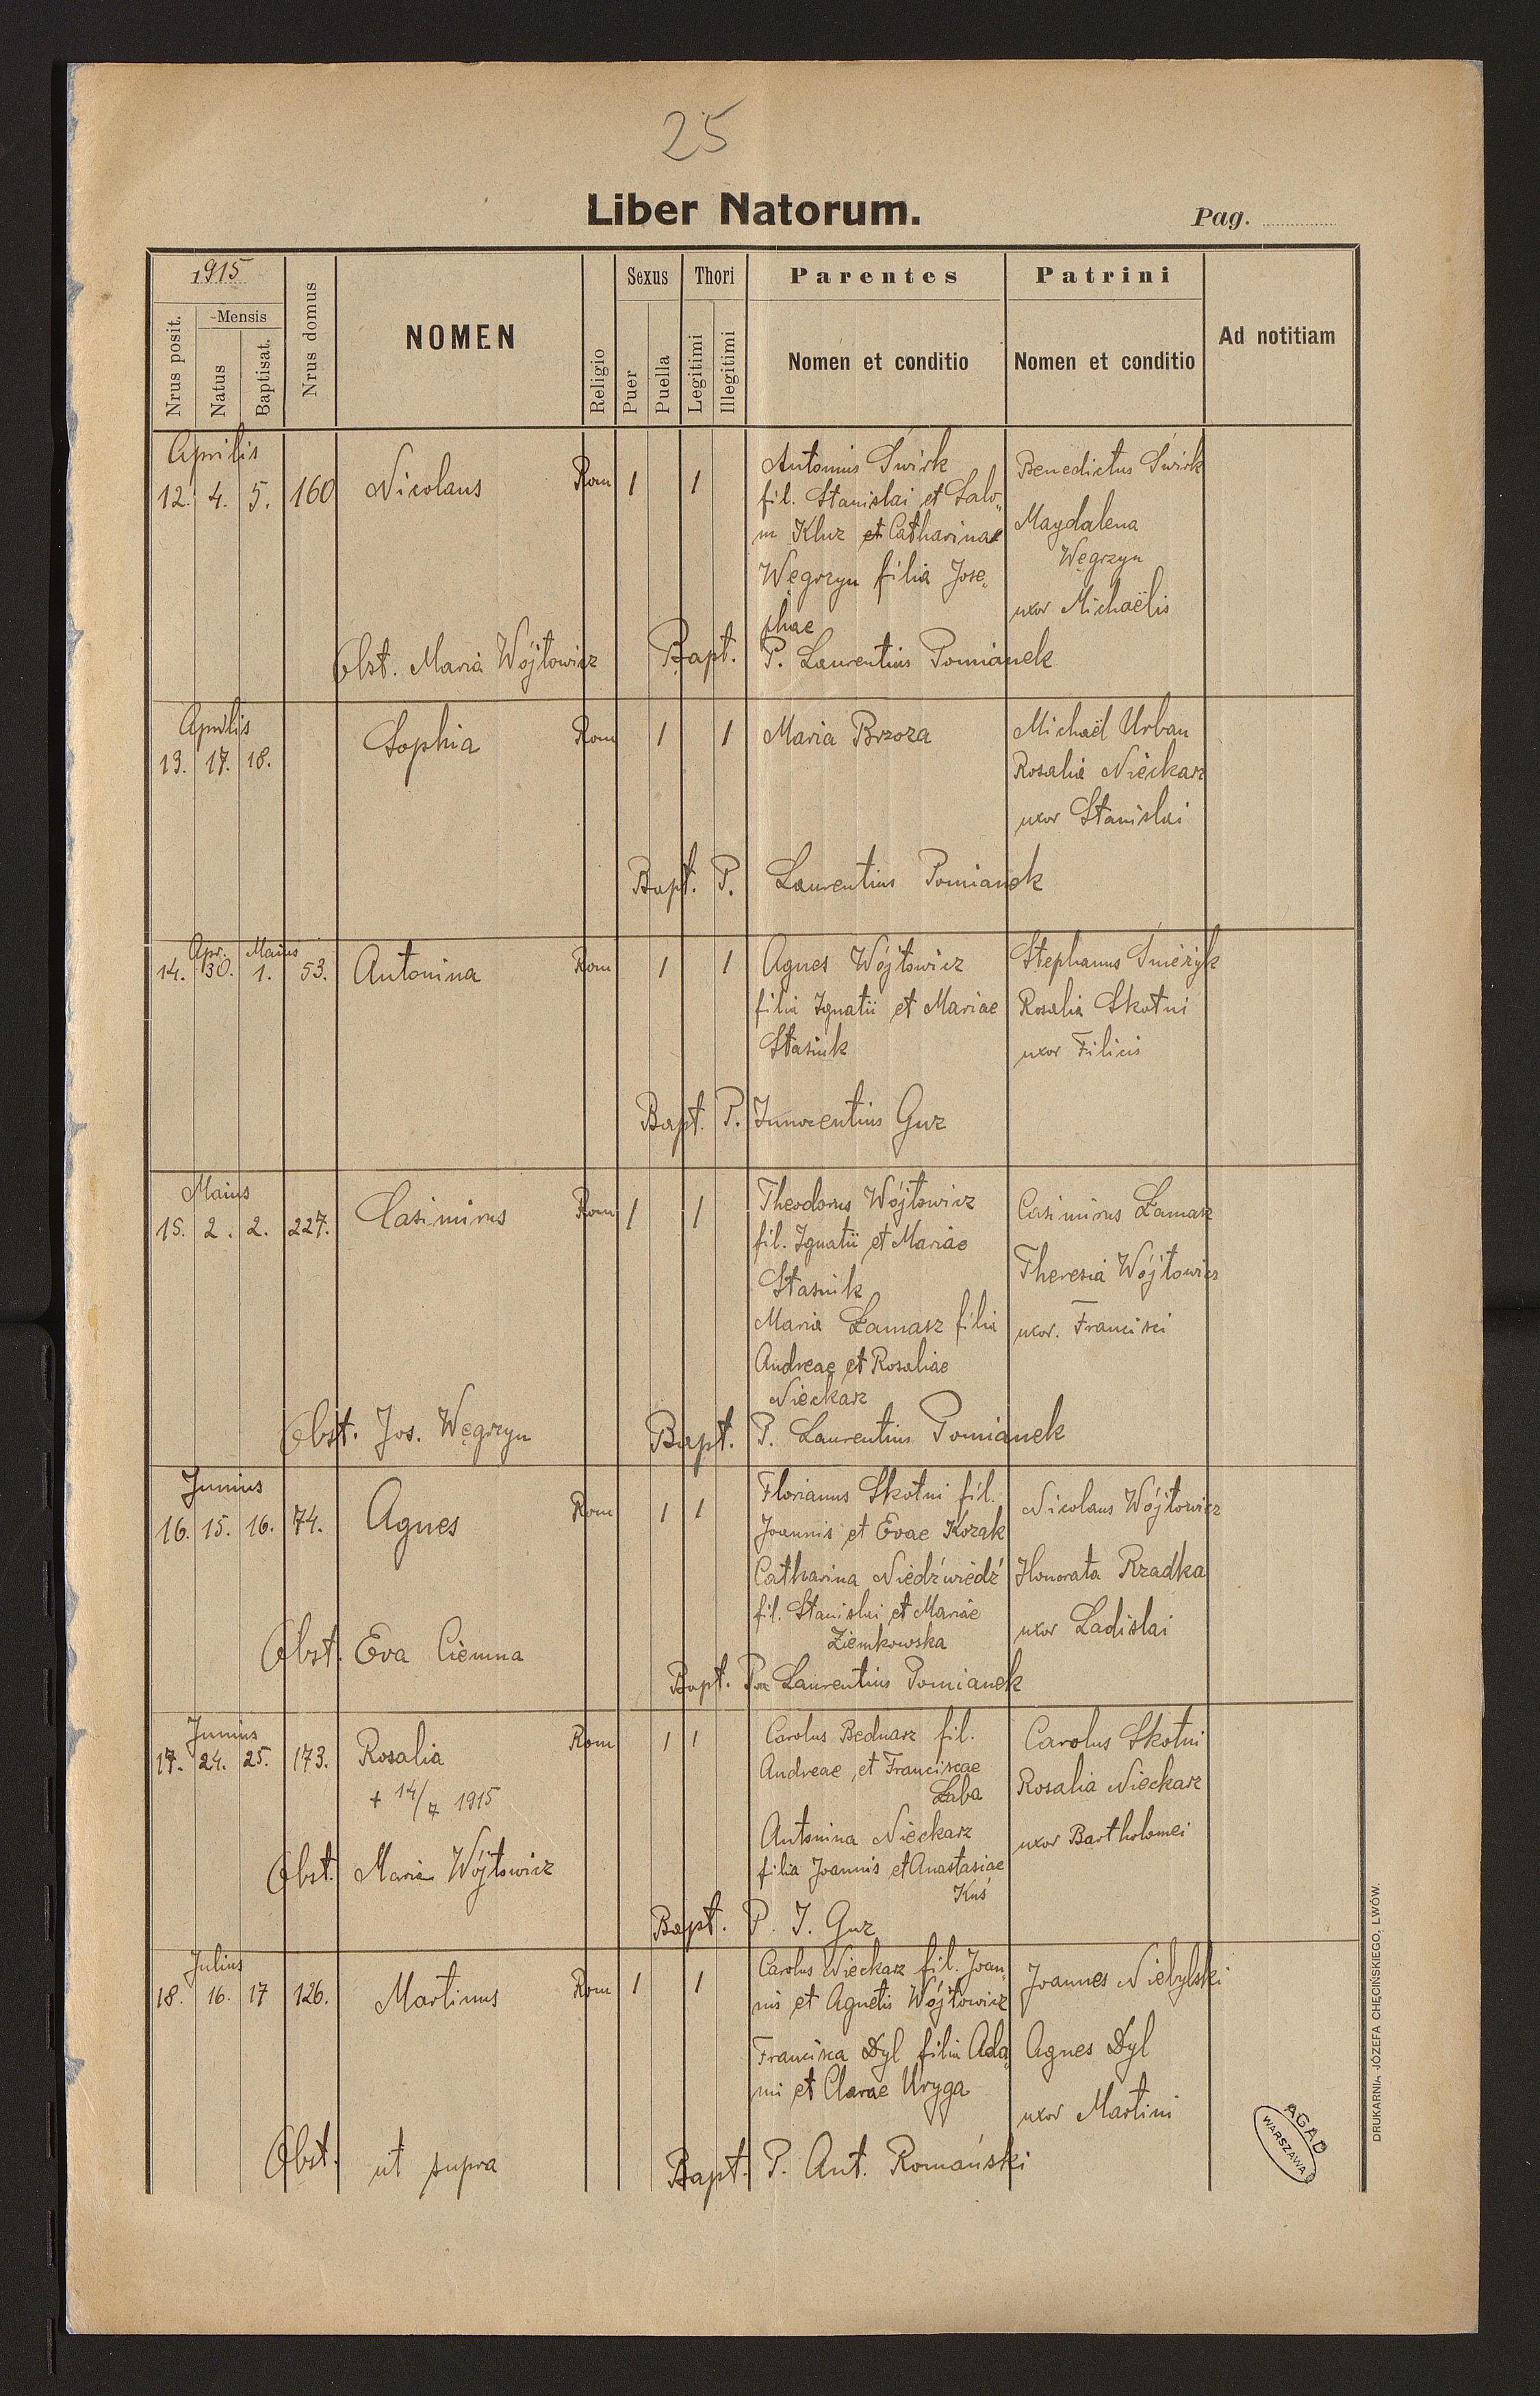 25
Liber Natorum.
Pag.
1915
Nrus posit.
Mensis
Natus
Baptisat.
Nrus domus
NOMEN
Religio
Sexus
Puer
Puella
Thori
Legitimi
Illegitimi
Parentes
Nomen et conditio
Patrini
Nomen et conditio
Ad notitiam
Aprilis
12. 4. 5. 160 Nicolaus Rom 1 1
Antonius Świrk
fil. Stanislai et Salo„
m Kluz et Catharinae
Węgrzyn filia Jose„
phae
Benedictus Świrk
Magdalena
Węgrzyn
uxor Michaëlis
Obst. Maria Wójtowicz Bapt. P. Laurentius Pomianek
Aprilis
13. 17. 18. Sophia Rom 1 1
Maria Brzoza
Michaël Urban
Rosalia Nieckarz
uxor Stanislai
Bapt. P. Laurentius Pomianek
Apr. Maius
14. 30. 1. 53. Antonina Rom 1 1
Agnes Wójtowicz
filia Ignatii et Mariae
Stasiuk
Stephanus Śnieżyk
Rosalia Skotni
uxor Filicis
Bapt. P. Innocentius Guz
Maius
15. 2. 2. 227. Casimirus Rom 1 1
Theodorus Wójtowicz
fil. Ignatii et Mariae
Stasiuk
Maria Łamasz filia
Andreae et Rosaliae
Nieckarz
Casimirus Łamasz
Theresia Wójtowicz
uxor. Francisci
Obst. Jos. Węgrzyn Bapt. P. Laurentius Pomianek
Junius
16. 15. 16. 74. Agnes Rom 1 1
Florianus Skotni fil.
Joannis et Evae Kozak
Catharina Niedźwiedź
fil. Stanislai et Mariae
Ziemkowska
Nicolaus Wójtowicz
Honorata Rzadka
uxor Ladislai
Obst. Eva Ciemna
Bapt. P. Laurentius Pomianek
Junius
17. 24. 25. 173. Rosalia Rom 1 1
+ 14/7 1915
Carolus Bednarz fil.
Andreae et Franciscae
Łaba
Antonina Nieckarz
filia Joannis et Anastasiae
Kuś
Carolus Skotni
Rosalia Nieckarz
uxor Bartholomei
Obst. Maria Wójtowicz
Bapt. P. J. Guz
Julius
18. 16. 17 126. Martinus Rom 1 1
Carolus Nieckarz fil. Joan„
nis et Agnetis Wójtowicz
Francisca Dyl filia Ada„
mi et Clarae Uryga
Joannes Niebylski
Agnes Dyl
uxor Martini
Obst. ut supra Bapt. P. Ant. Romański
AGAD
WARSZAWA
DRUKARNIA JÓZEFA CHĘCIŃSKIEGO, LWÓW.